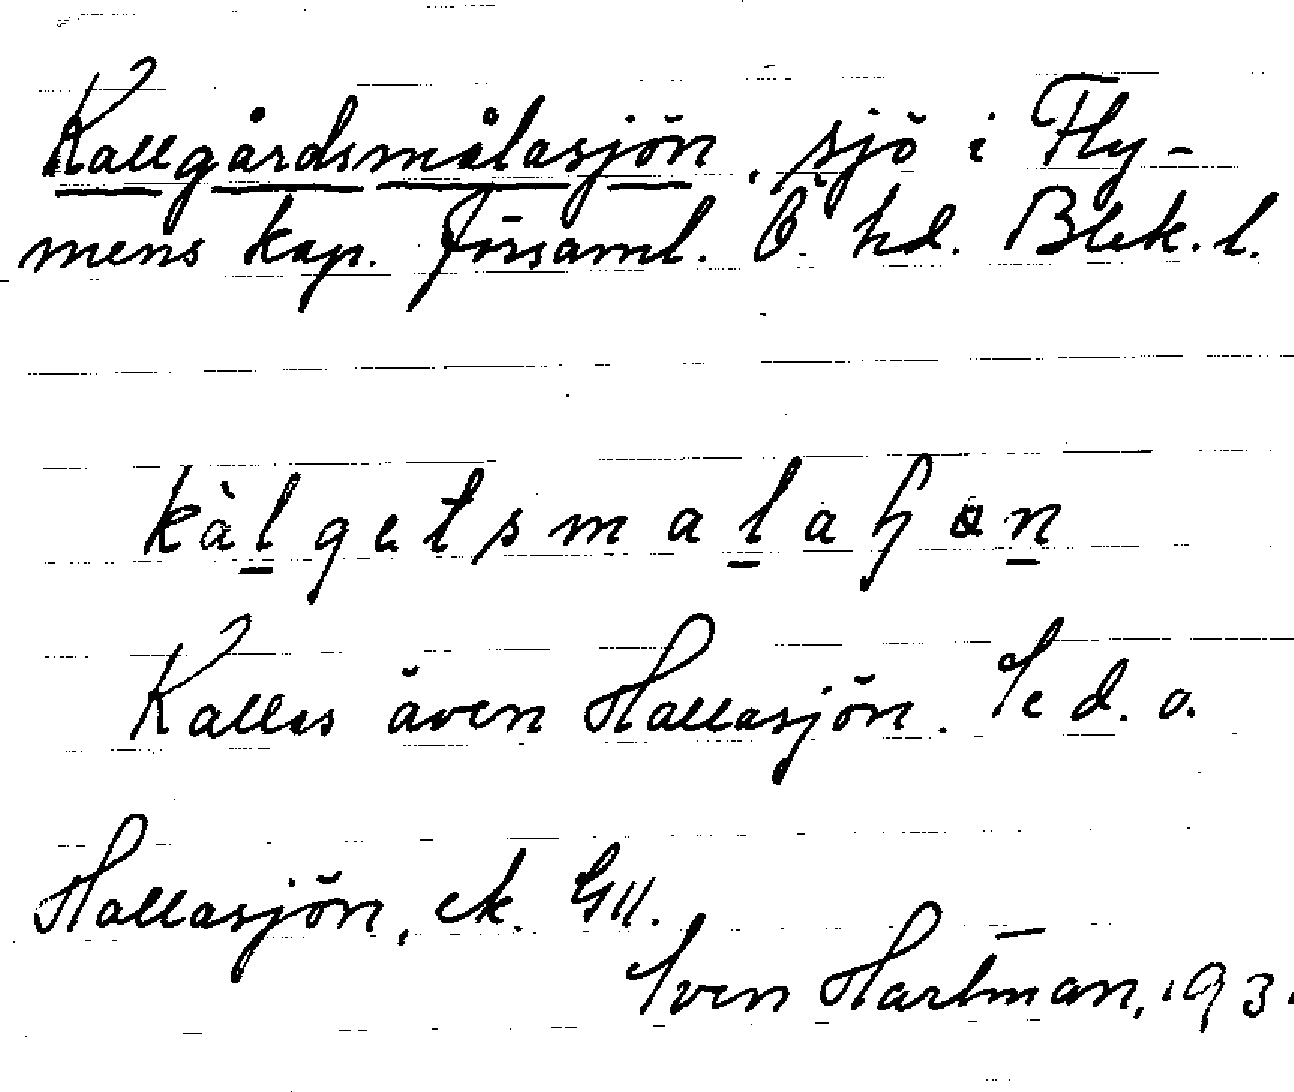 Kallgårdsmålasjön, sjö i Fly-
mens kap. församl. Ö. hd. Blek. l.
kàlgetsmalaɧøn
Kallas även Hallasjön. Se d. o.
Hallasjön, ek. GII.
Sven Hartman, 193.